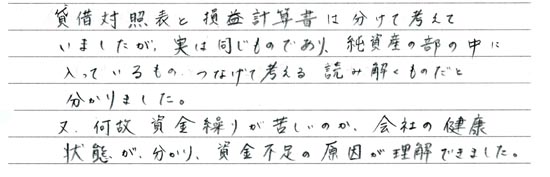 貸借対照表と損益計算書は分けて考えて
いましたが、実は同じものであり、純資産の部の中に
入っているもの、つなげて考える 読み解くものだと
分かりました。
又、何故 資金繰りが苦しいのか、会社の健康
状態が、分かり、資金不足の原因が理解できました。